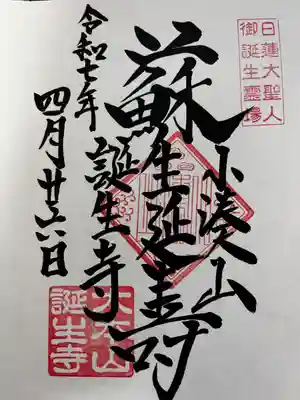 日蓮大聖人
御誕生霊場
小湊山
蘇生延寿
誕生寺
令和七年
四月廿六日
大本山
誕生寺